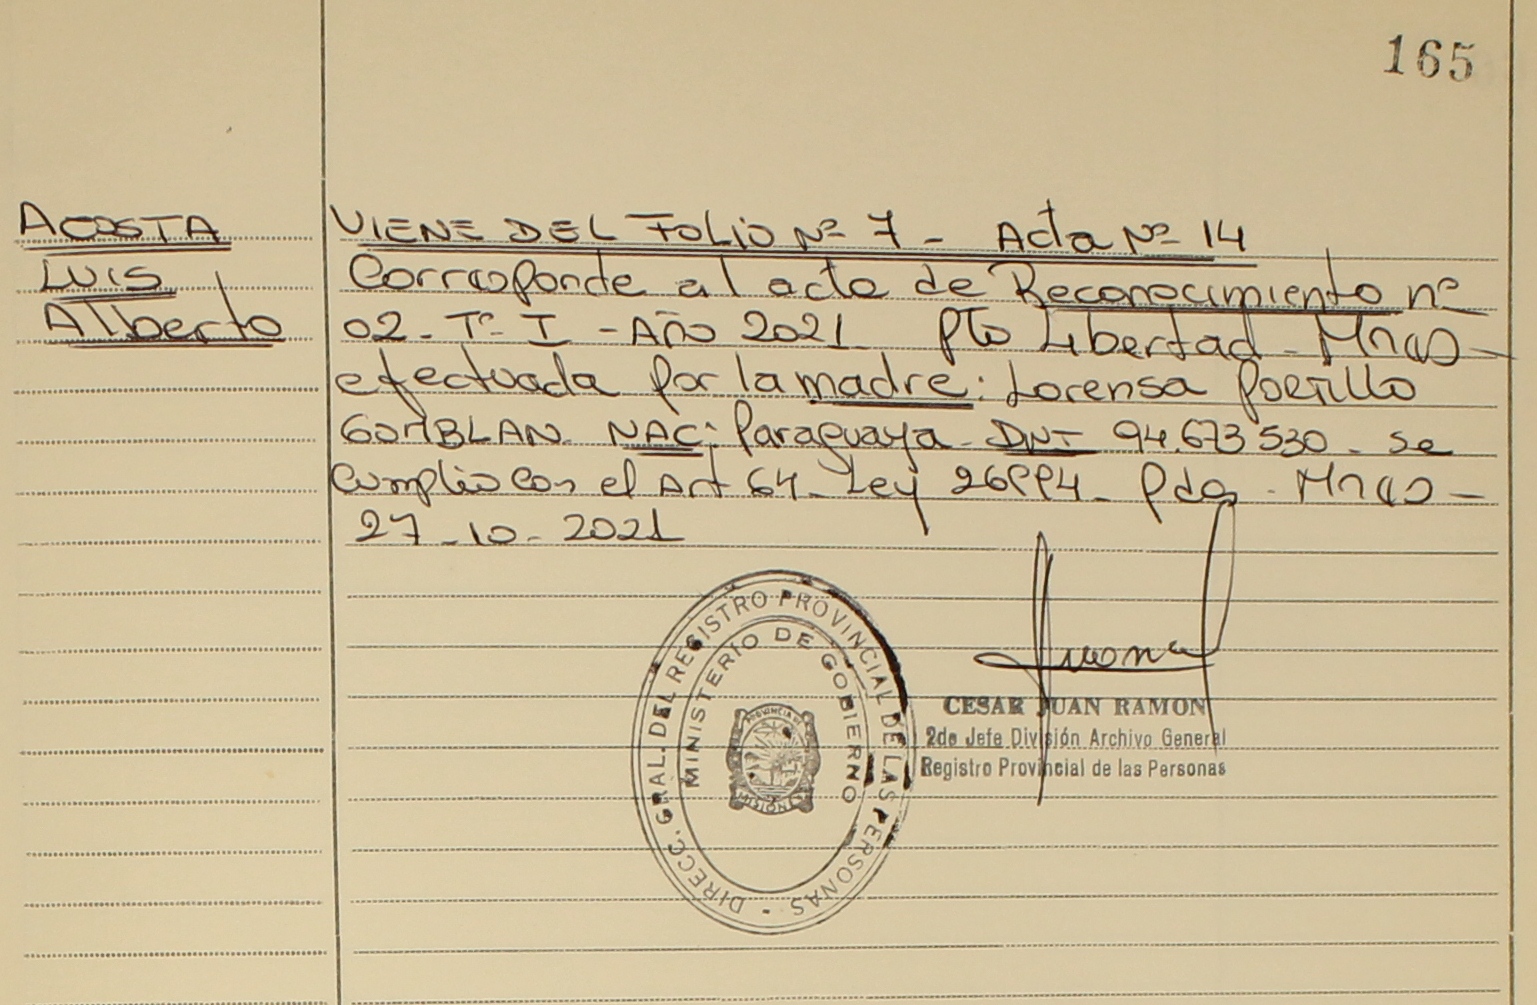 165
ACOSTA
LUIS
Alberto
VIENE DEL FOLIO Nº 7 - Acta Nº 14
Corresponde al acta de Reconocimiento nº
02 - Tº I - Año 2021 Pto Libertad - Mnes -
efectuada por la madre: Lorensa Portillo
GOMBLAN. NAC: Paraguaya - DNI 94.673530 - se
cumplio con el Art 64 - Ley 26994 - Pdas - Mnes -
27-10-2021
DIRECC. GRAL. DEL REGISTRO PROVINCIAL DE LAS PERSONAS -
MINISTERIO DE GOBIERNO
PROVINCIA DE
MISIONES
CESAR JUAN RAMON
2do Jefe División Archivo General
Registro Provincial de las Personas